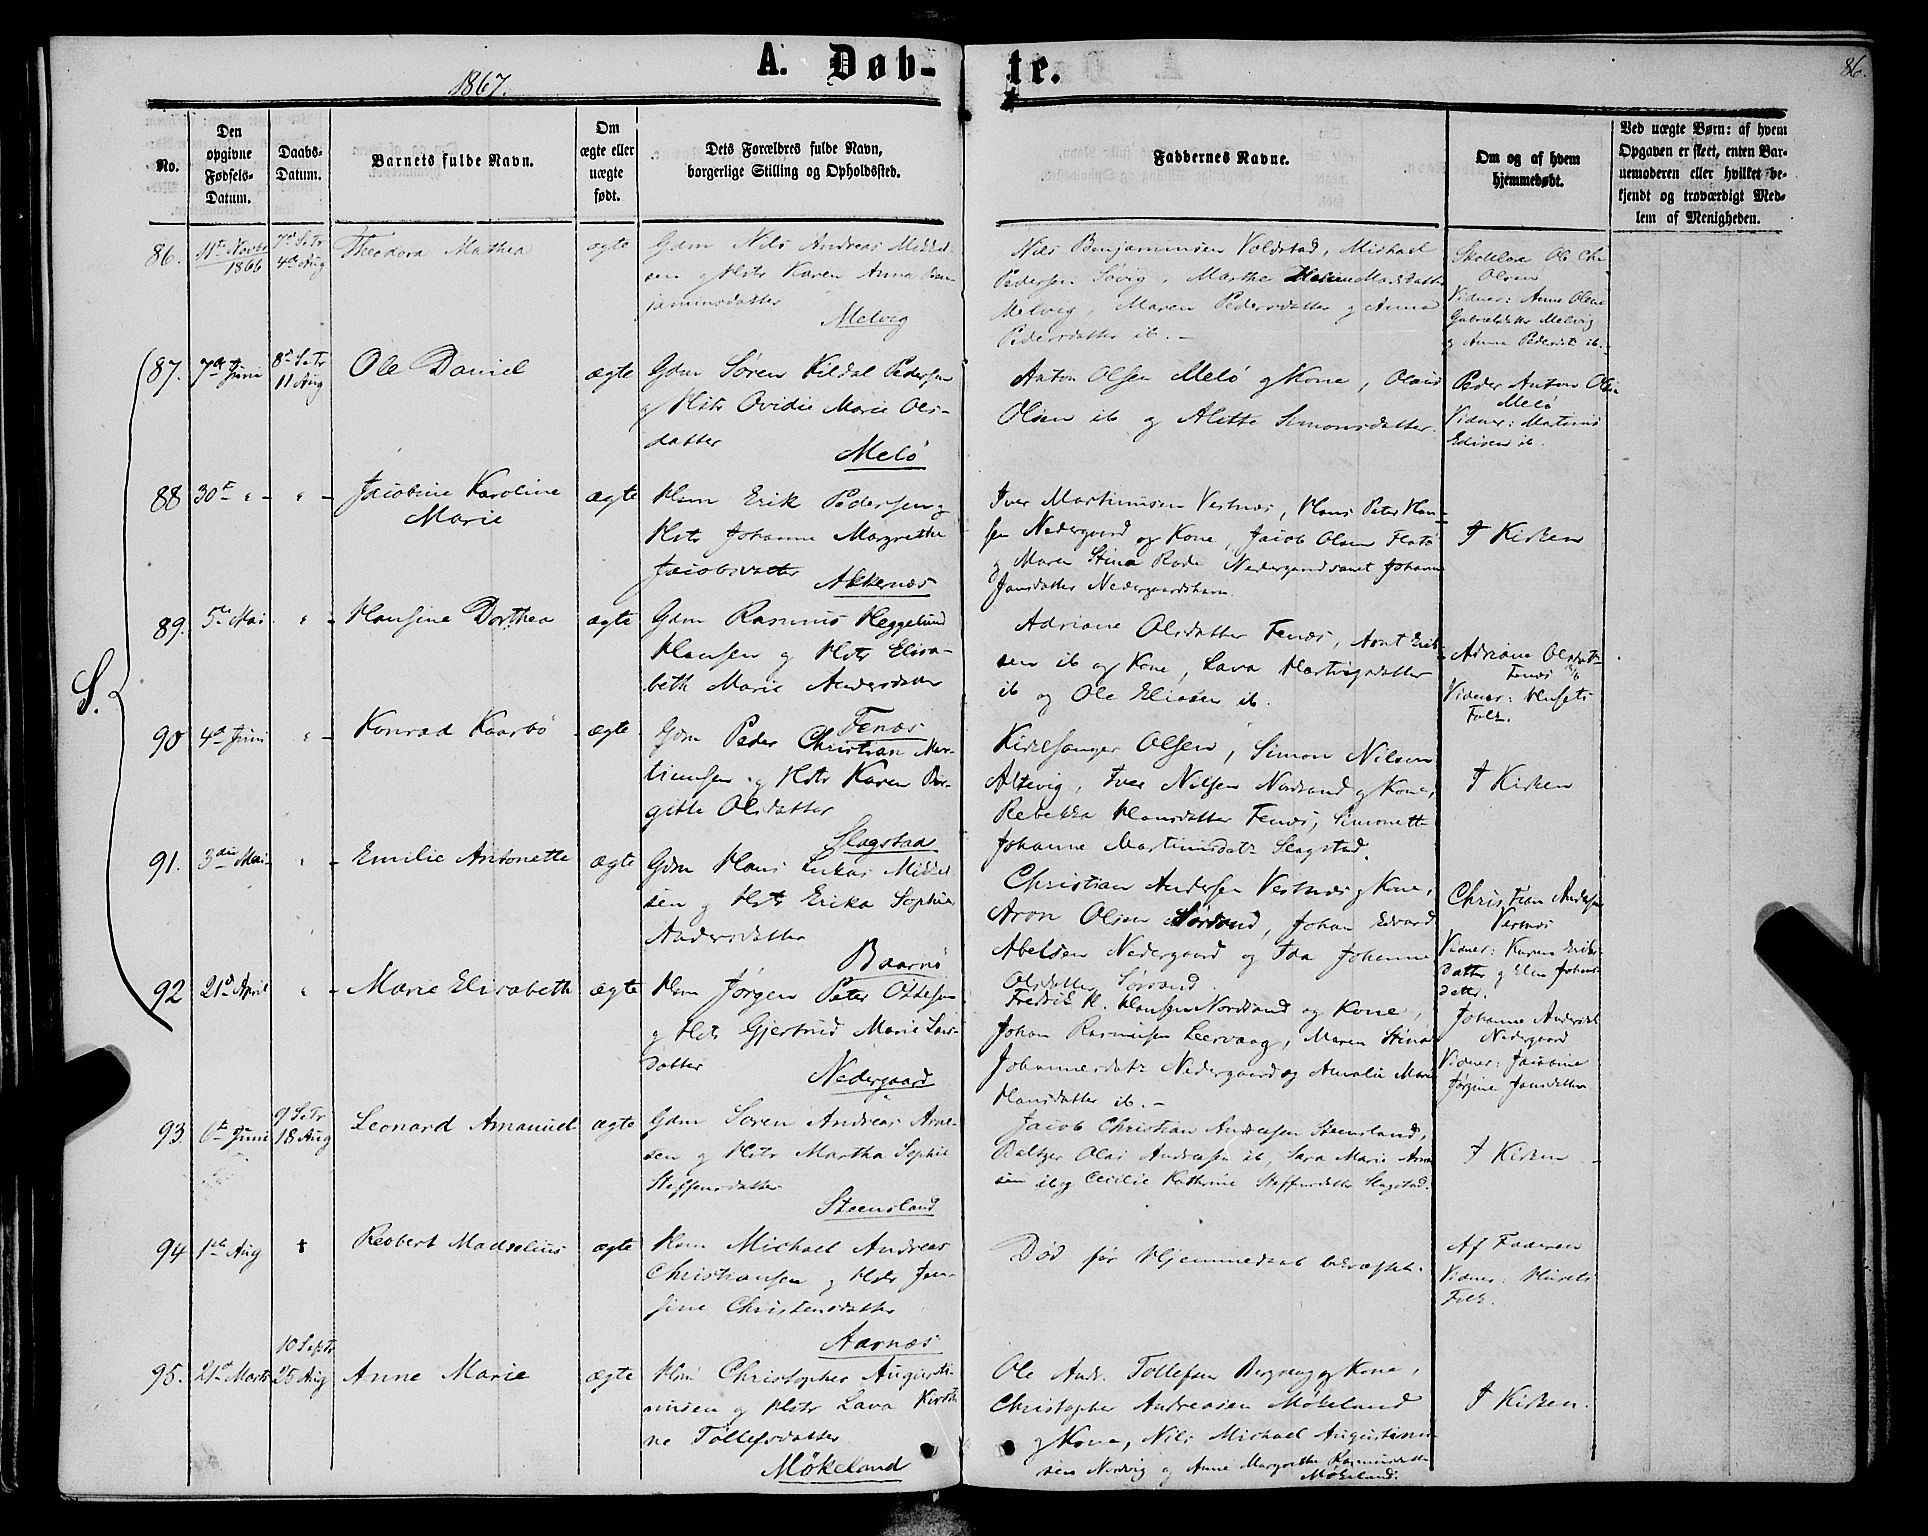 A. Døb-
te.
1867.
86.
No.
Den
opgivne
Fødsels-
Datum.
Daabs-
Datum.
Barnets fulde Navn.
Om
ægte eller
uægte
født.
Dets Forældres fulde Navn,
borgerlige Stilling og Opholdssted.
Faddernes Navne.
Om og af hvem
hjemmedøbt.
Ved uægte Børn: af hvem
Opgaven er skeet, enten Bar-
nemoderen eller hvilket be-
kjendt og troværdigt Med-
lem af Menigheden.
86. 11t Novbr 1866
7d S. Tr
4d Aug
Theodora Mathea
ægte
Gdm Nils Andreas Mikkel-
sen g Hstr Karen Anna Ben-
jaminsdatter
Melvig
Nils Benjaminsen Voldstad, Michael
Pedersen Søvig, Marthe Helene Madsdatter
Melvig, Maren Pedersdatter g Anna
Pedersdatter ib. -
Skolelær. Ole Chr.
Olsen
Vidner: Anne Olene
Gabrielsdatter Melvig
g Anna Pedersdt ib. -
87. 7de Juni
8d S. Tr
11 Aug
Ole Daniel
ægte
Gdm Søren Kildal Pedersen
g Hstr Ovidie Marie Ols-
datter
Melø
Anton Olsen Melø g Kone, Olaus
Olsen ib g Alette Simonsdatter.
Peder Anton Olsen
Melø
Vidner: Martinus
Edisen ib.
88 30t " - " -
Jacobine Karoline
Marie
ægte
Hsm Erik Pedersen g
Hstr Johanne Margrethe
Jacobsdatter
Akkernæs
Iver Martinusen Vestnæs, Hans Peter Han-
sen Nedergaard og Kone, Jacob Olsen Flatø
g Maren Stina Rode Nedergaardsvaret Johann
Jansdatter Nedergaardshavn
I Kirken
89. 5te Mai " -
Hansine Dorthea
ægte
Gdm Rasmus Heggelund
Hansen g Hstr Elisa-
beth Marie Andersdatter
Fenæs
Adriane Olsdatter Fenæs, Arnt Erik-
sen ib og Kone, Lava Hartvigsdatter
ib og Ole Eliasen ib.
Adriane Olsdat-
Fenæs
Vidner: Husets
Folk.
S.
90 4d Juni " -
Konrad Kaarbø
ægte
Gdm Peder Christian Mar-
tinusen g Hstr Karen Bir-
gitte Olsdatter
Slagstad
Kirkesanger Olsen, Simon Nilsen
Altevig, Iver Nilsen Nordsand g Kone,
Rebekka Hansdatter Fenæs, Simonette
Johanne Martinusdatr Slagstad.
I Kirken
91. 3die Mai " -
Emilie Antonette
ægte
Gdm Hans Lukas Mikkel-
sen g Hstr Erika Sophie
Andersdatter
Baarnø
Christian Andersen Vestnæs g Kone,
Aron Olsen Sørsand, Johan Edvard
Abelsen Nedergaard og Ida Johanne
Olsdatter Sørsand.
Christian Andersen
Vestnæs
Vidner: Karen Eriks-
datter g Elen Johans-
datter.
92 21d April " -
Marie Elisabeth
ægte
Hsm Jørgen Peter Ottesen
g Hstr Gjertrud Marie Lars-
datter
Nedergaard
Fredrik H. Hansen Nordsand og Kone,
Johan Rasmusen Leervaag, Maren Stina
Johannesdatr Nedergaard og Amalie Marie
Hansdatter ib. -
Johanne Andersdt
Nedergaard
Vidner: Jacobine
Jørgine Jansdatter
93 6t Juni
9 S. Tr
18 Aug
Leonard Amanuel
ægte
Gdm Søren Andreas Arne-
sen g Hstr Martha Sophie
Steffensdatter
Steensland
Jacob Christian Andreasen Steensland,
Baltzer Olai Andreasen ib, Sara Marie Arne-
sen ib g Cecilie Kathrine Steffensdatter Slagstad.
I Kirken
94 1ste Aug
†
Reobert Madselius
ægte
Hsm Michael Andreas
Christiansen g Hstr Jen-
sine Christensdatter
Aarnæs
Død før Hjemmedaab bekræftet.
Af Faderen
Vidner: Husets
Folk.
95. 21d Marts
10 S. Tr
25 Aug
Anne Marie
ægte
Hsm Christopher Augusti-
nusen g Hstr Lava Kirsti-
ne Tollefsdatter
Møkeland
Ole Andr. Tollefsen Bergsvag g Kone,
Christopher Andreasen Møkeland
g Kone, Nils Michael Augustinu-
sen Nordvig og Anne Margrethe Rasmusdatter
Møkeland.
I Kirken.